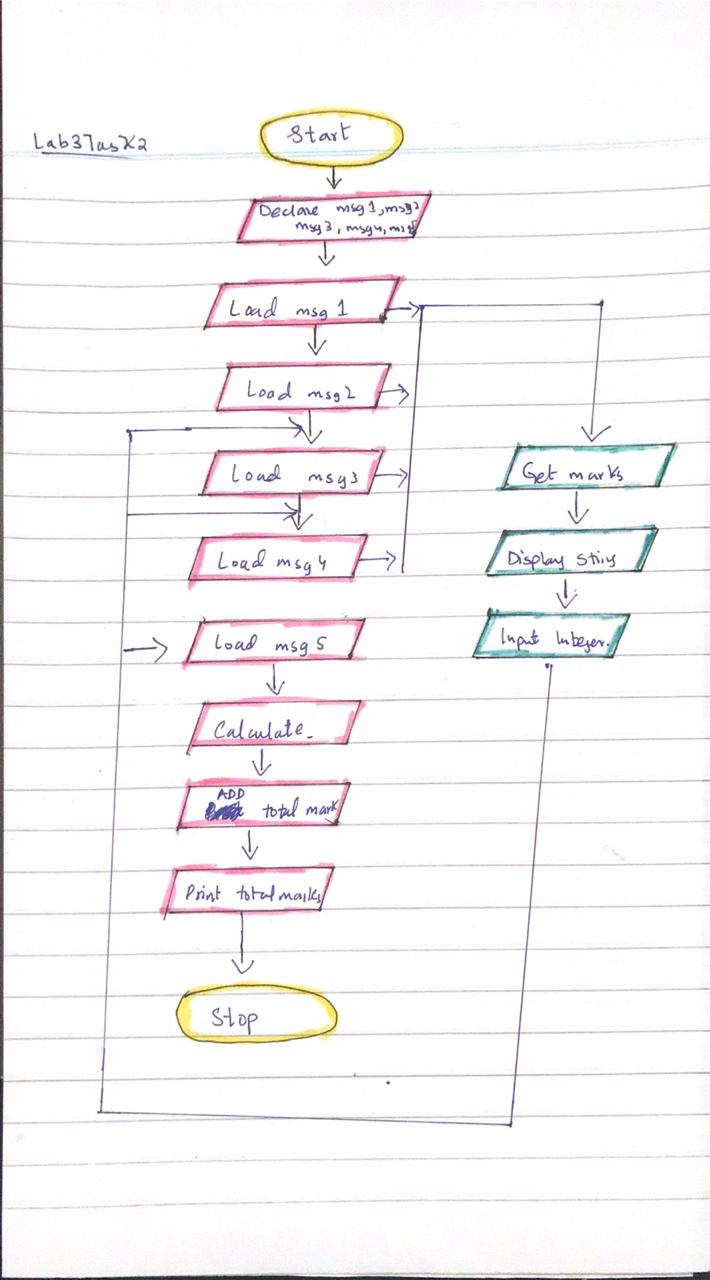 Lab3Task2
Start
Declare msg1, msg2
msg3, msg4, msg5
Load msg 1
Load msg2
Load msg3
Load msg4
Load msg 5
Calculate
ADD
total mark
Print total marks
Stop
Get marks
Display
Input Integer.